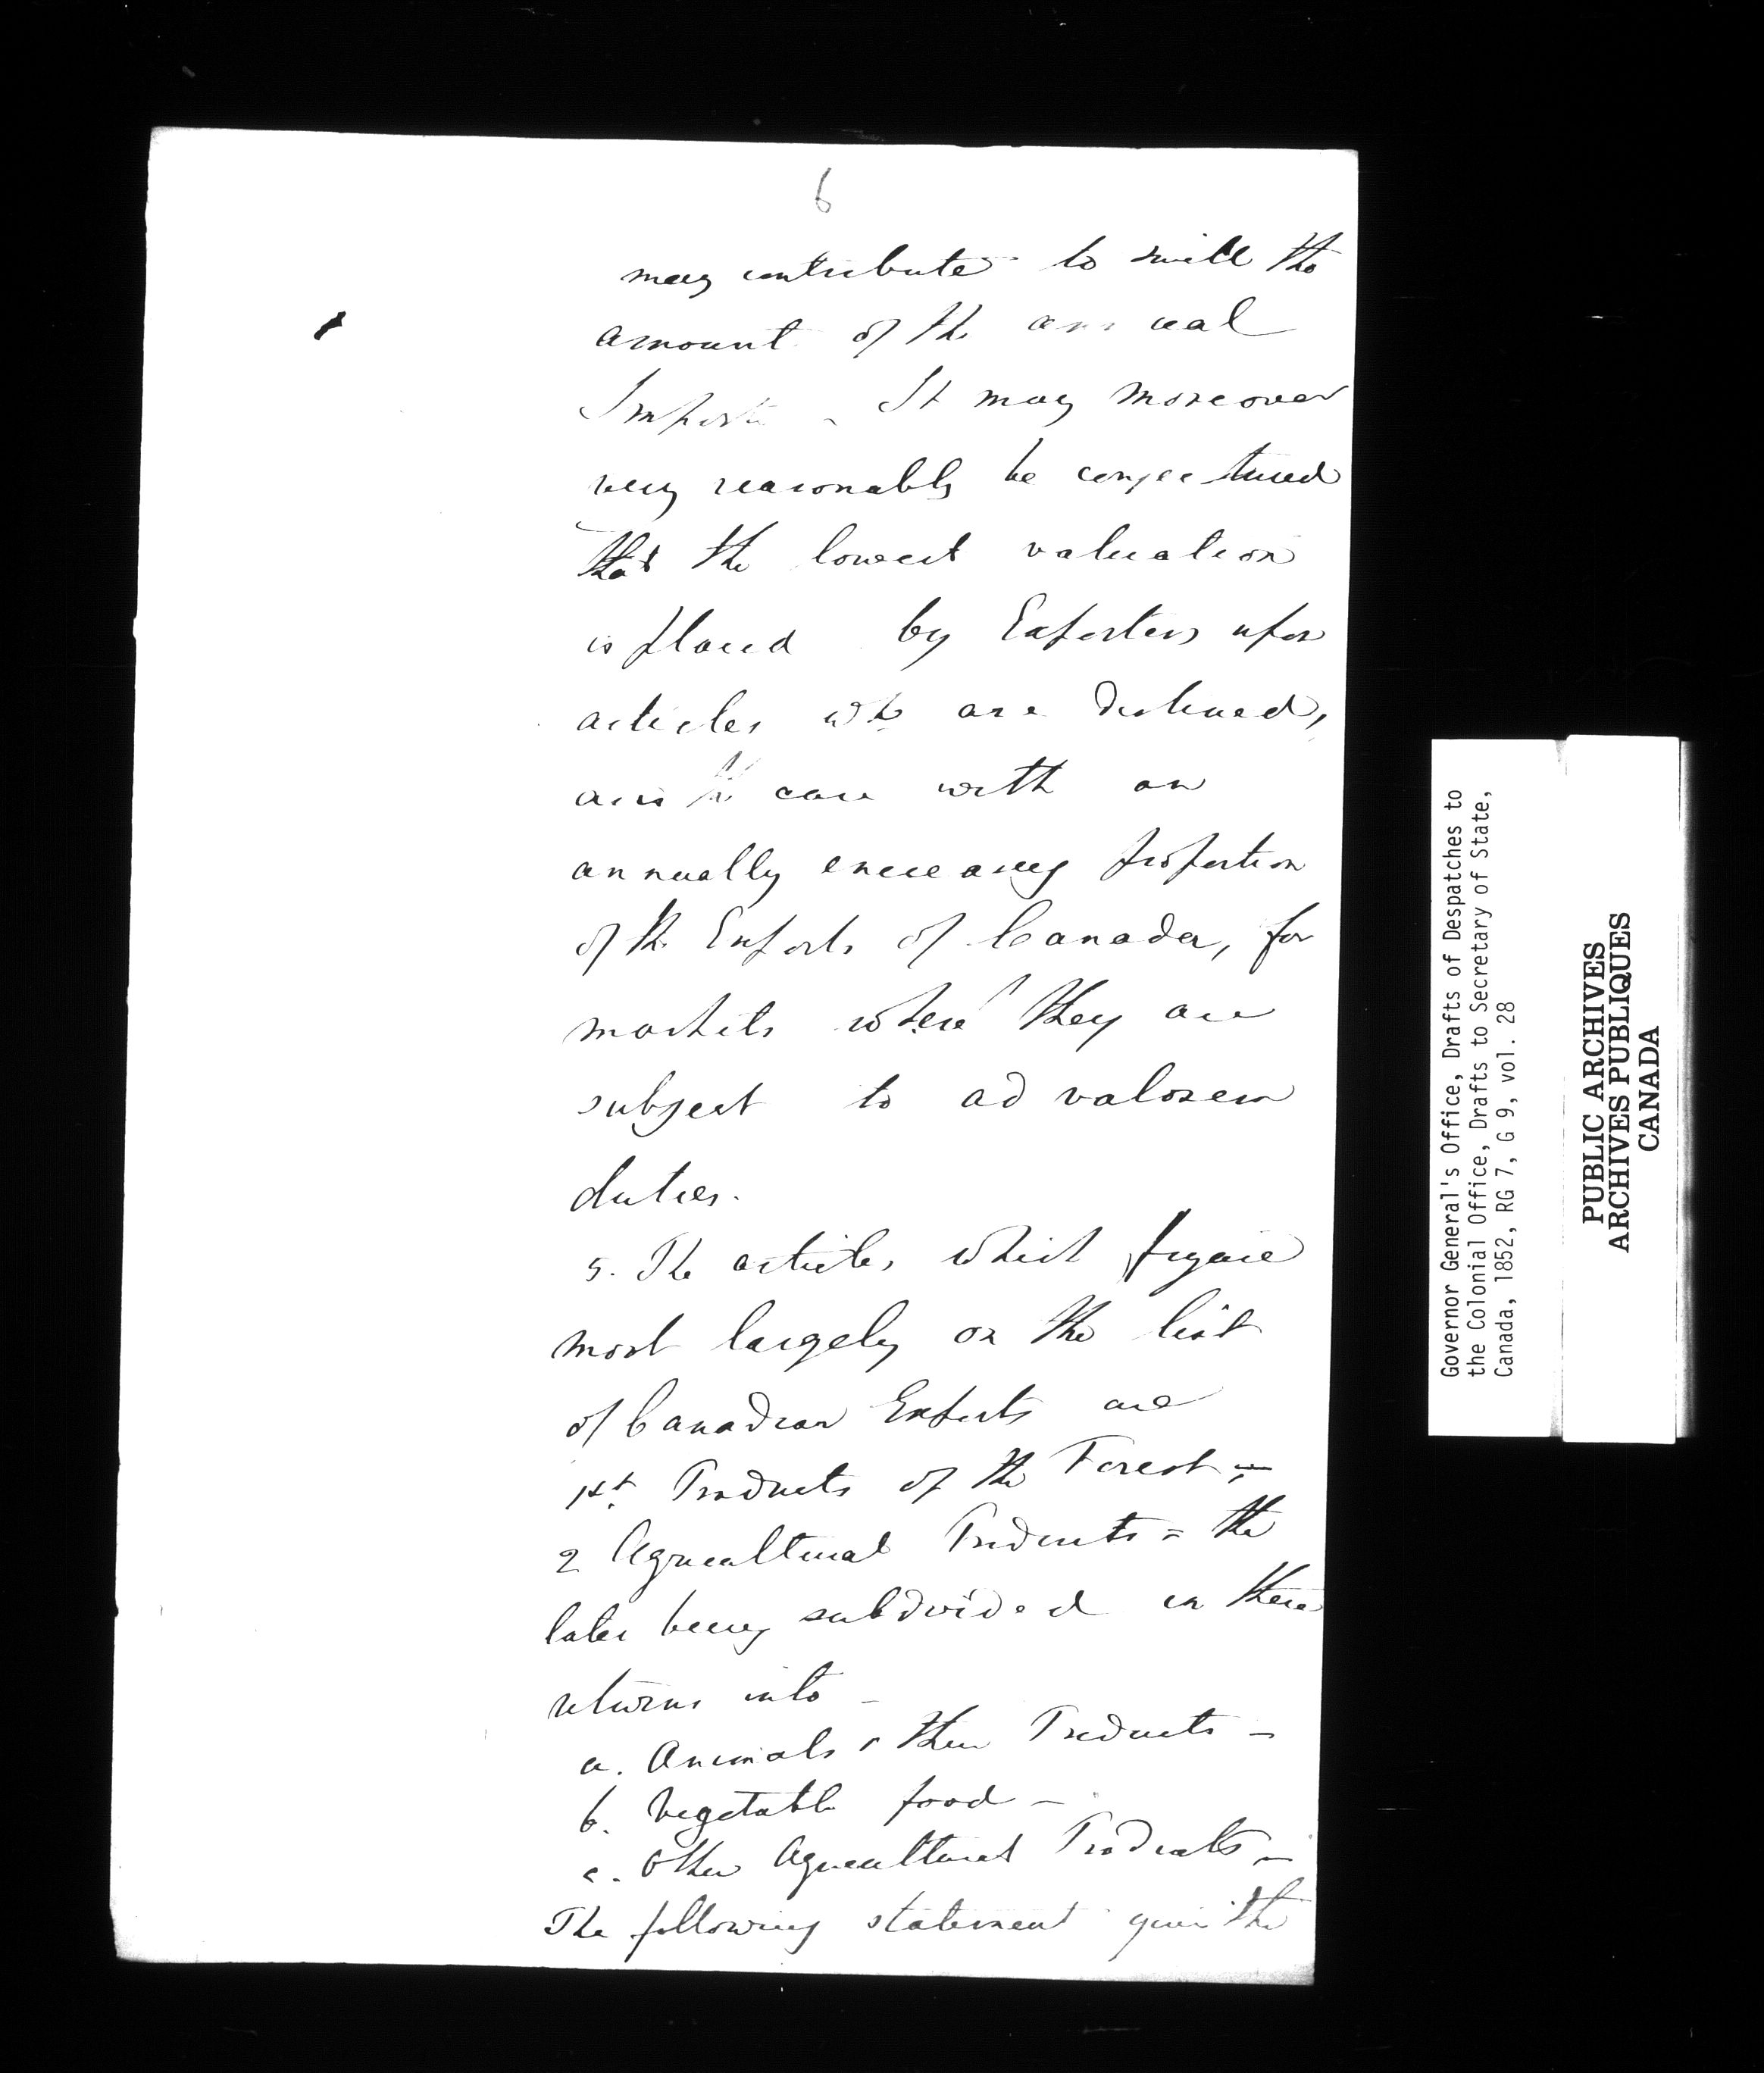 6
may contribute to swell the
amount of the annual
Imports - It may moreover
very reasonably be conjectured
that the lowest valuation
is placed by Exporters upon
articles wh. are destined,
as is the case with an
annually increasing proportion
of the Exports of Canada, for
markets where they are
subject to ad valorem
duties.
5. The articles which figure
most largely on the list
of Canadian Exports are
1st. Products of the Forest -
2 Agricultural Products = the
later being subdivided in these
returns into -
a. Animals & their Products -
b. Vegetable food -
c. Other Agricultural Products -
The following statement gives the
Governor General's Office, Drafts of Despatches to
the Colonial Office, Drafts to Secretary of State,
Canada, 1852, RG 7, G 9, vol. 28
PUBLIC ARCHIVES
ARCHIVES PUBLIQUES
CANADA